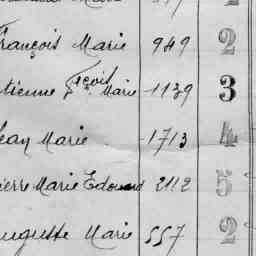 François Marie 949 2
Etienne Fçois Marie 1139 3
Jean Marie 1713 4
Pierre Marie Edouard 2112 5
Auguste Marie 557 2